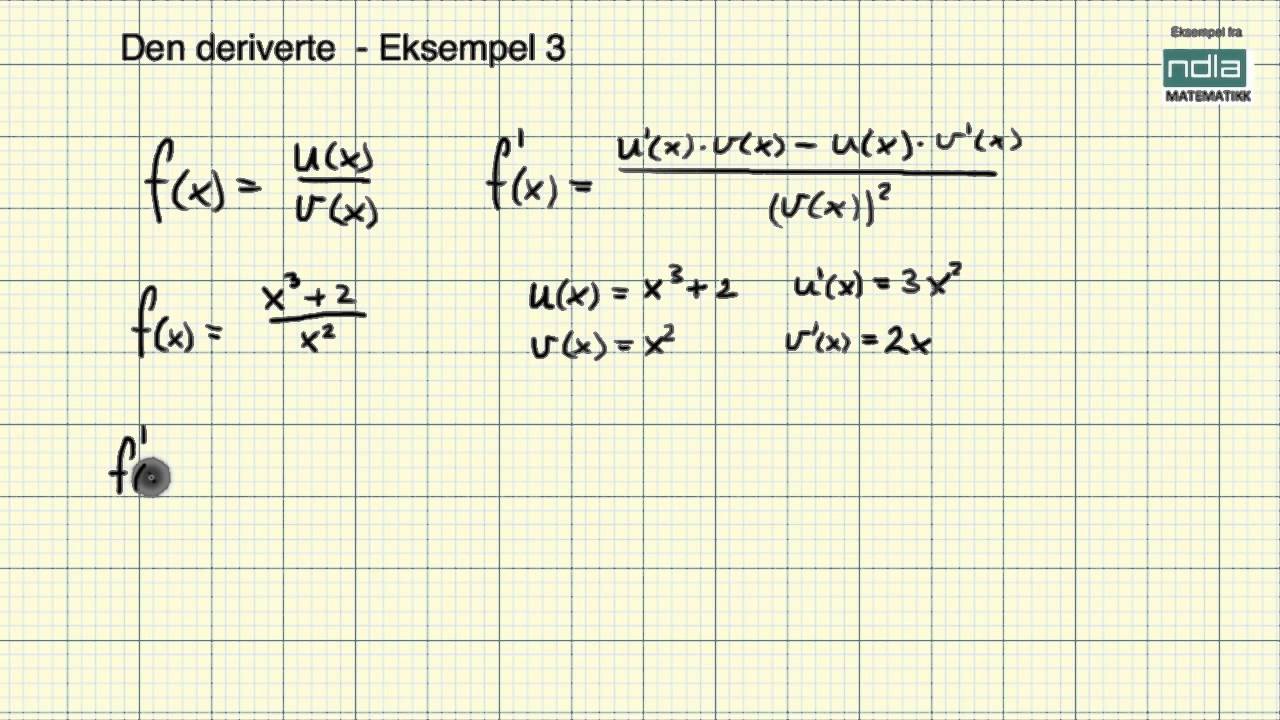 Den deriverte - Eksempel 3
Eksempel fra
ndla
MATEMATIKK
f(x) = u(x)/v(x)
f'(x) = (u'(x)·v(x) − u(x)·v'(x))/(v(x))²
f(x) = (x³+2)/x²
u(x) = x³+2
u'(x) = 3x²
v(x) = x²
v'(x) = 2x
f'(